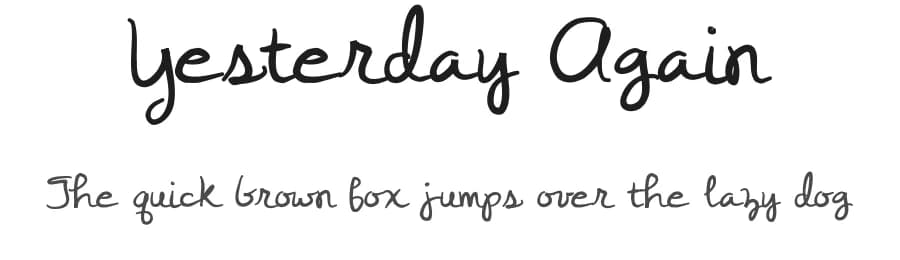 Yesterday Again
The quick brown fox jumps over the lazy dog